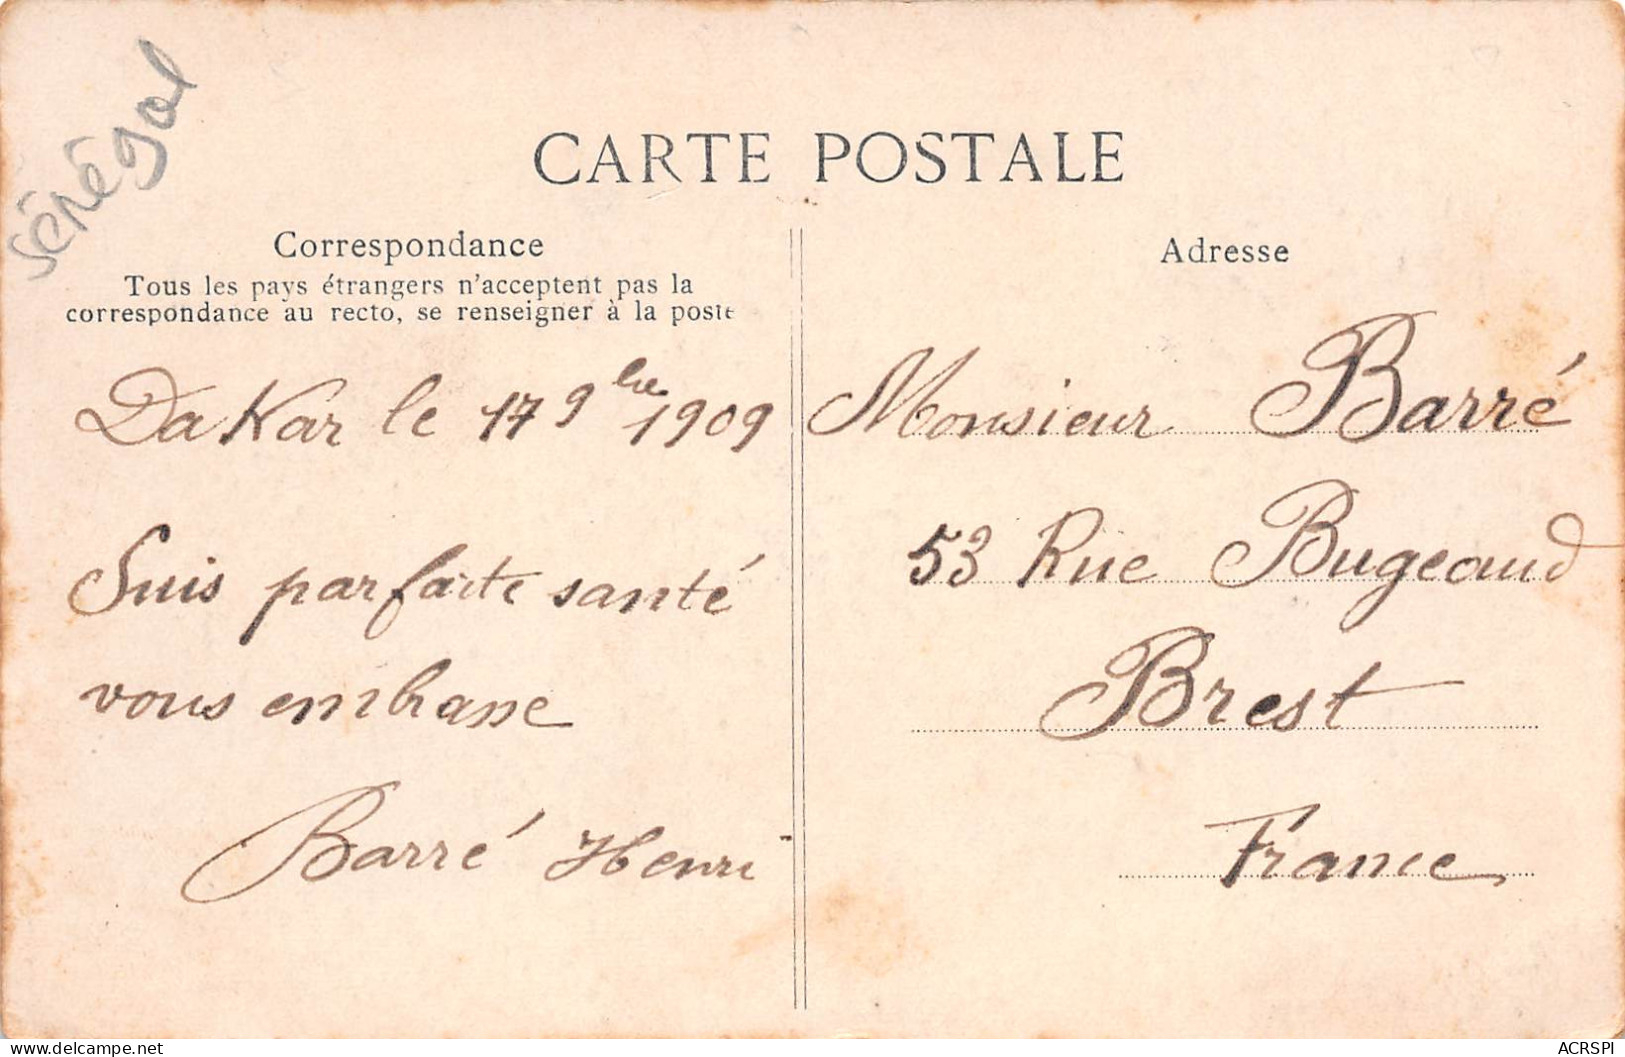 Sénégal
CARTE POSTALE
Correspondance
Tous les pays étrangers n'acceptent pas la
correspondance au recto, se renseigner à la poste
DaKar le 17 9bre 1909
Suis parfaite santé
vous embrasse
Barré Henri
Adresse
Monsieur Barré
53 Rue Bugeaud
Brest
France
delcampe.net
ACRSPI